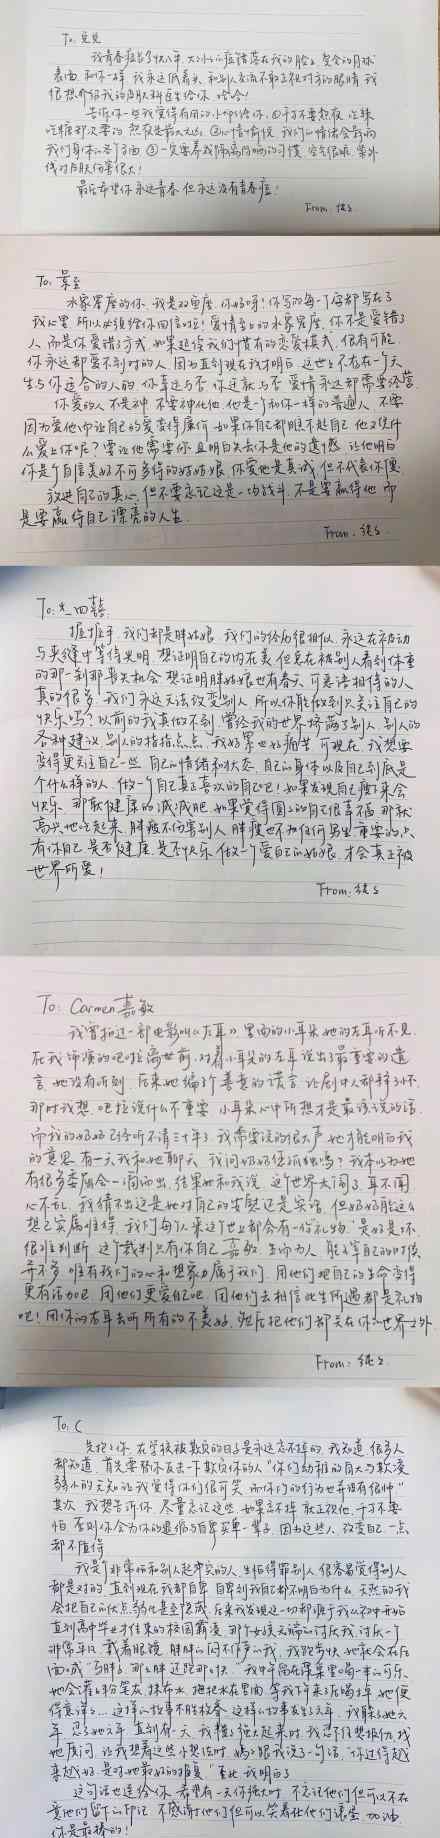 To. 见见
我青春痘长了快八年 大大小小的痘错落在我的脸上 契合的月球
表面 和你一样 我永远低着头 和别人交流不敢正视对方的眼睛 我
很想介绍我的皮肤科医生给你 哈哈！
告诉你一些我觉得有用的小 给你 ①千万不要熬夜 吃辣
吃糖都次要的 熬夜是最大 ②心情愉悦 我们的情绪会影响
我们身体的各方面 ③一定要养成 的习惯 空气很脏 紫外
线对皮肤伤害很大！
最后希望你永远青春 但永远没有青春痘！
From. 张s
To. 景至
水象星座的你 我是双鱼座 你好呀！你写的每一个字都写在了
我心里 所以必须给你回信啦！爱情至上的水象星座 你不是爱错了
人 而是你爱错了方式 如果延续我们惯有的恋爱模式 很有可能
你永远都爱不到对的人 因为直到现在我才明白 这世上不存在一个天
生与你适合的人的 你幸运与否 你这款与否 爱情永远都需要经营
你爱的人不是神 不要神化他 他是个和你一样的普通人 不要
因为爱他而让自己的爱变得廉价 如果你自己都瞧不起自己 他又凭什
么爱上你呢？要让他需要你 且明白失去你是他的遗憾 让他明白
你是个自信美好不可多得的好姑娘 你爱他是真诚 但不代表你傻
放进自己的真心 但不要忘记这是一场战斗 不是要赢得他 而
是要赢得自己漂亮的人生
From. 张s
To. 大四囍
握握手 我们都是胖姑娘 我们的经历很相似 永远在被动
与夹缝中等待光明 想证明自己的内在美 但总在被别人看到体重
的那一刹那丧失机会 想证明胖姑娘也有春天 可恶语相待的人
真的很多 我们永远无法改变别人 所以你能做到只关注自己的
快乐吗？以前的我真做不到 曾经我的世界挤满了别人 别人的
各种建议 别人的指指点点 我好累也好痛苦 可现在 我想要
变得更关注自己一些 自己的情绪和状态 自己的身体以及自己到底是
个什么样的人 做一个自己真正喜欢的自己吧！如果发现自己瘦下来会
快乐 那就健康的减减肥 如果觉得圆圆的自己很幸福 那就
高兴地吃起来 胖瘦不伤害别人 胖瘦也不为任何男生 重要的只
有你自己 是否健康 是否快乐 做一个爱自己的姑娘 才会真正被
世界所爱！
From. 张s
To: Carmen嘉敏
我曾拍过一部电影叫《左耳》里面的小耳朵她的左耳听不见
在我饰演的吧啦离世前 对着小耳朵的左耳说出了最重要的遗
言 她没有听到 后来她编了个善意的谎言 让剧中人都释怀
那时我想 吧啦说什么不重要 小耳朵心中所想才是最该说的话
而我的奶奶已经听不清三十年了 我常要说的很大声她才能明白我
的意思 有一天我和她聊天 我问奶奶你孤独吗？我本以为她
有很多委屈会一涌而出 结果她和我说 这个世界太闹了 耳不闻
心不乱 我猜不出这是她对自己的安慰还是实话 但奶奶能这么
想已实属难得 我们每个人来这个世上都会有一份礼物 是好是坏
很难判断 这个裁判只有你自己 嘉敏 生而为人 能了算自己的时候
并不多 唯有我们的心和想象力属于我们 用他们把自己的生命变得
更有活力吧 用他们更爱自己吧 用他们去相信此生所遇都是礼物
吧！用你的左耳去听所有的不美好 然后把他们都关在你的世界之外
From: 张s
To: C
先抱抱你 在学校被欺负的日子是永远忘不掉的 我知道 很多人
都知道 首先要替你反击一下欺负你的人 "你们幼稚的自大与欺凌
弱小的无知让我觉得你们很可笑 而你们的行为也并没有很帅"
其次 我想告诉你 尽量忘记这些 如果忘不掉 就正视他 千万不要
怕 否则你会为你的退缩与自卑买单一辈子 因为这些人 改变自己一点
都不值得
我是个非常怕和别人起冲突的人 生怕得罪别人 很容易觉得别人
都是对的 直到现在我都自卑 自卑到我自己都不明白为什么 天然的我
会把自己的优点弱化甚至隐藏 后来我发现这一切都源于我从初中开始
直到高中毕业才结束的校园霸凌 那个女孩无端的讨厌我 讨厌一个
非常平凡 戴着眼镜 胖胖的闷不作声的我 我跑步快 她就会在后
面喊 "马胖子 那么胖还跑那么快" 我中午留在课桌里喝一半的可乐
她会灌上粉笔灰 抹布水 拖把水在里面 等我下午来了后喝掉 她便
得意洋洋 这样的故事不胜枚举 这样的故事发生了六年 我躲了她六
年 忍了她六年 直到有一天 我稍稍强大起来时 我忍不住想报仇 找
她质问 让我想着这些小想法时 妈妈跟我说了一句话 "你过得越
幸越好 是对她最好的报复" 至此 我明白了
这句话也送给你 希望有一天你强大时 不忘记他们但可以不在
意他们留下的印记 不感谢他们但可以笑着让他们滚蛋 加油
你是最棒的！